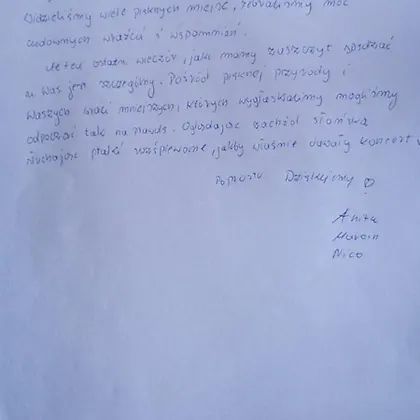 Widzieliśmy wiele pięknych miejsc, zebraliśmy moc
cudownych wrażeń i wspomnień.
Ale ten ostatni wieczór, jaki mamy zaszczyt spędzać
u Was jest szczególny. Pośród pięknej przyrody i
Waszych braci mniejszych, których wygłaskaliśmy mogliśmy
odpocząć tak na prawdę. Oglądając zachód słońca
słuchając ptaki rozśpiewane, jakby właśnie dawały koncert
Poprostu Dziękujemy ♡
Anita
Marcin
Nico